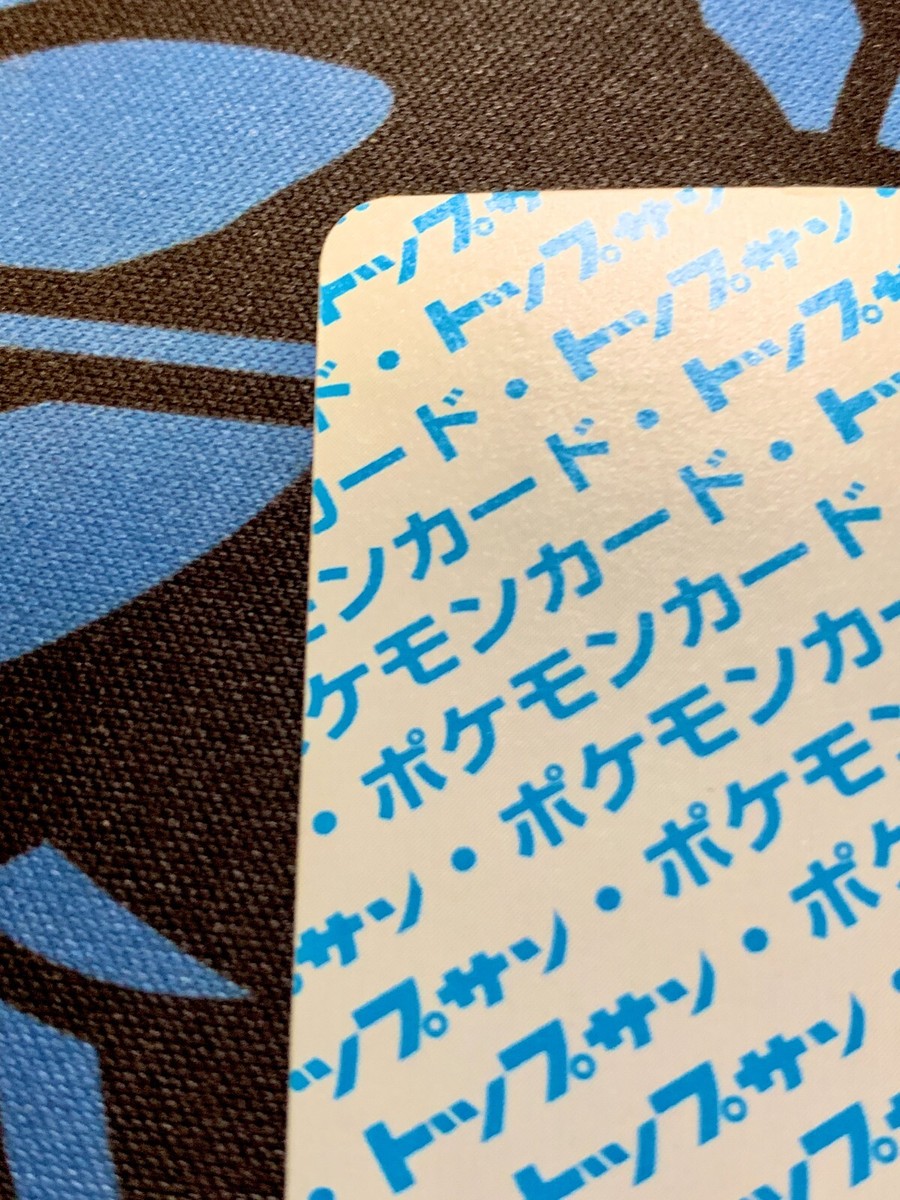 トップサン
トップサン
ド・トップサン
カード・トップサン
ンカード・トップサ
モンカード・トッ
ケモンカード
・ポケモンカー
サン・ポケモン
ップサン・ポケモン
・トップサン・ポケ
トップサン・
トップ